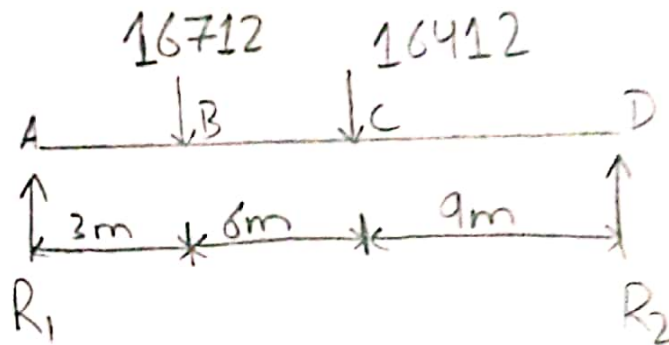 16712 16412
A B C D
3m 6m 9m
R1 R2